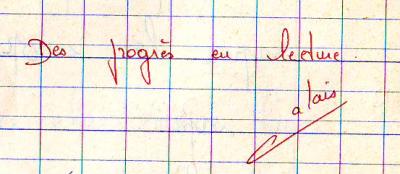 Des progrès en lecture.